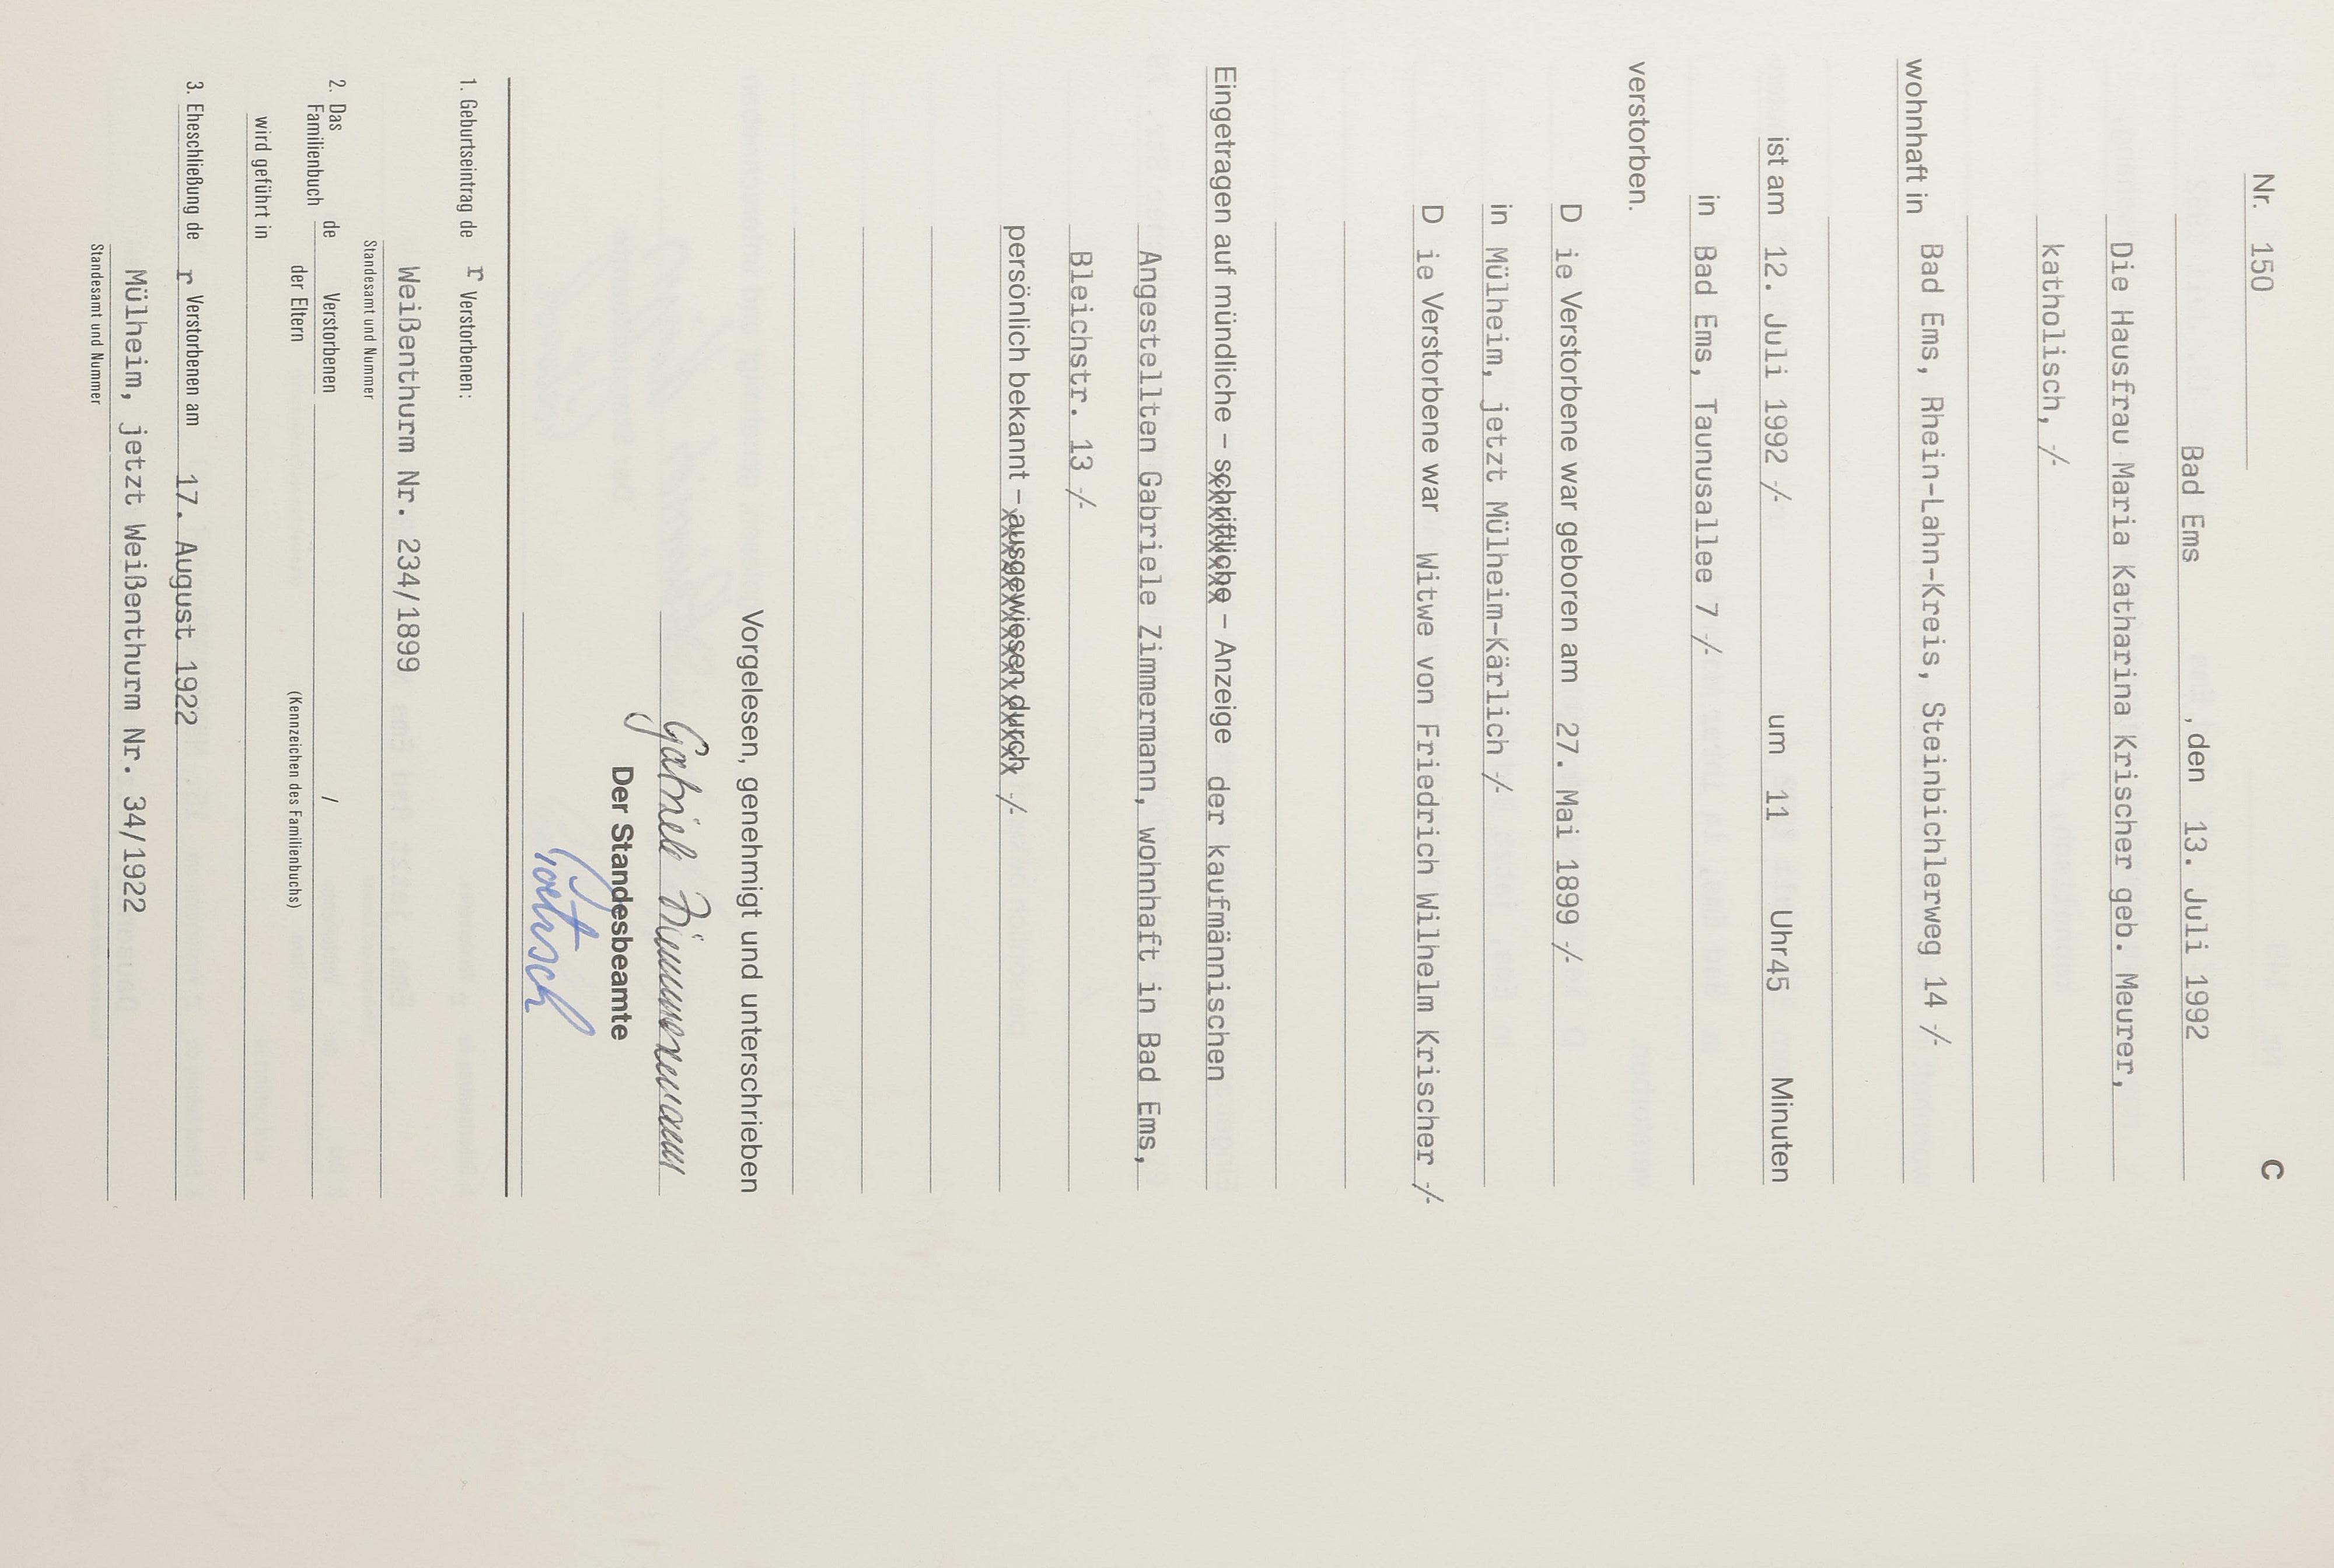 C
Nr. 150
Bad Ems , den 13. Juli 1992
Die Hausfrau Maria Katharina Krischer geb. Meurer,
katholisch, -/-
wohnhaft in Bad Ems, Rhein-Lahn-Kreis, Steinbichlerweg 14 -/-
ist am 12. Juli 1992 -/- um 11 Uhr 45 Minuten
in Bad Ems, Taunusallee 7 -/-
verstorben.
D ie Verstorbene war geboren am 27. Mai 1899 -/-
in Mülheim, jetzt Mülheim-Kärlich -/-
D ie Verstorbene war Witwe von Friedrich Wilhelm Krischer -/-
Eingetragen auf mündliche – schriftliche – Anzeige der kaufmännischen
Angestellten Gabriele Zimmermann, wohnhaft in Bad Ems,
Bleichstr. 13 -/-
persönlich bekannt – ausgewiesen durch -/-
Vorgelesen, genehmigt und unterschrieben
Gabriele Zimmermann
Der Standesbeamte
1. Geburtseintrag de r Verstorbenen:
Weißenthurm Nr. 234/1899
Standesamt und Nummer
2. Das Familienbuch de Verstorbenen /
der Eltern (Kennzeichen des Familienbuchs)
wird geführt in
3. Eheschließung de r Verstorbenen am 17. August 1922
Mülheim, jetzt Weißenthurm Nr. 34/1922
Standesamt und Nummer